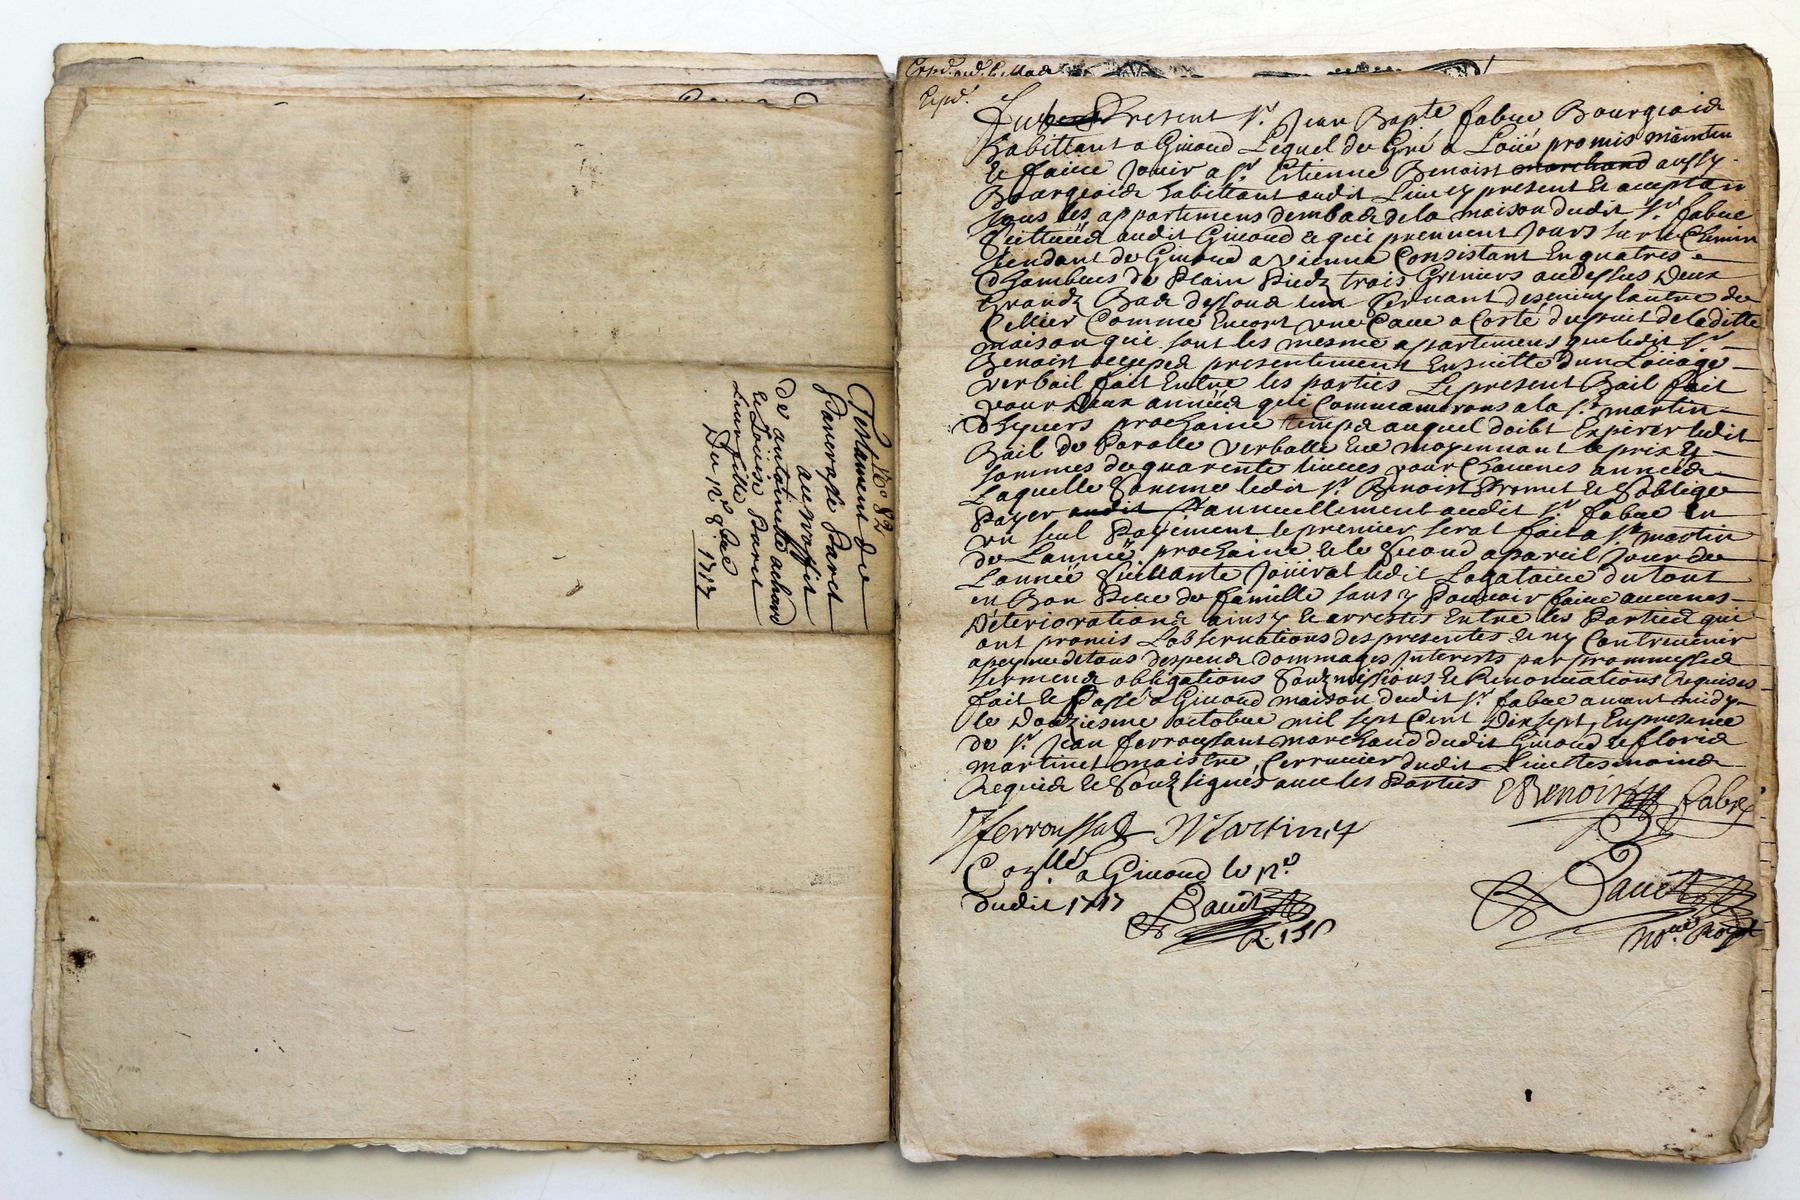 N° 82
Testament de
Pancrasse Paret
au proffit
de antoinette achard
et Loüise Paret
Leur fille
Du 12e 8bre 1717
Expd.
Present Sr. Jean Bapte fabre Bourgeois
habittant a Giuord Lequel de Gré a Loüé promis maintenir
et faire Jouir a Sr. Estienne Benoist marchand aussy
Bourgeois habittant audit Lieu cy present et acceptant
tous les appartemens dembas de la maison dudit Sr. fabre
scittuéé audit Giuord & qui prennent Jours sur le Chemin
tendant de Giuord a vienne Consistant En quatres
Chambres de Plain Piedz trois Greniers audessus Deux
Grandz Bas dessous un seruant descuiry lautre de
Cellier Comme Encore vne Caue a Costé du puit de laditte
maison qui sont les mesme appartemens que ledit Sr
Benoist occupes presentement Ensuitte dun Loüage
verbail fait Entre les parties Le present Bail fait
pour Deux années qui Commanserons a la St martin
Dhyuers prochaine temps auquel doibt Expirer ledit
Bail de Parolle verballe Et moyennant le prix &
sommes de quarente liures pour Chacunes années
Laquelle somme ledit Sr. Benoist Promet & soblige
Payer audit Sr annuellement audit Sr fabre En
un seul Payement le premier serat fait a St martin
de Lannéé prochaine & le segond a pareil Jour de
Lannéé suiuante Joüirat ledit Locataire du tout
en Bon Pere de famille sans y Pouuoir faire aucunes
Deteriorations ainsy & arrestes Entre les Parties qui
ont promis Lobseruations des presentes & ny Contreuenir
a peyne de tous despens dommages Interests par prommesses
serments obligations soubzmissions & Renonciations Requises
fait & Passé a Giuord maison dudit Sr. fabre auant midy
le Douziesme octobre mil sept Cent Dix sept, En presence
de Sr. Jean ferroussat marchand dudit Giuord & floris
martinet maistre serrurier dudit Lieu tesmoins
Requis & soubzsignés auec les Parties EBenoist fabre
Jferroussat Martinet
Conllé a Giuord le 12e
dudit 1717
Dauet
R. 13s
Dauet
Nore. Royal